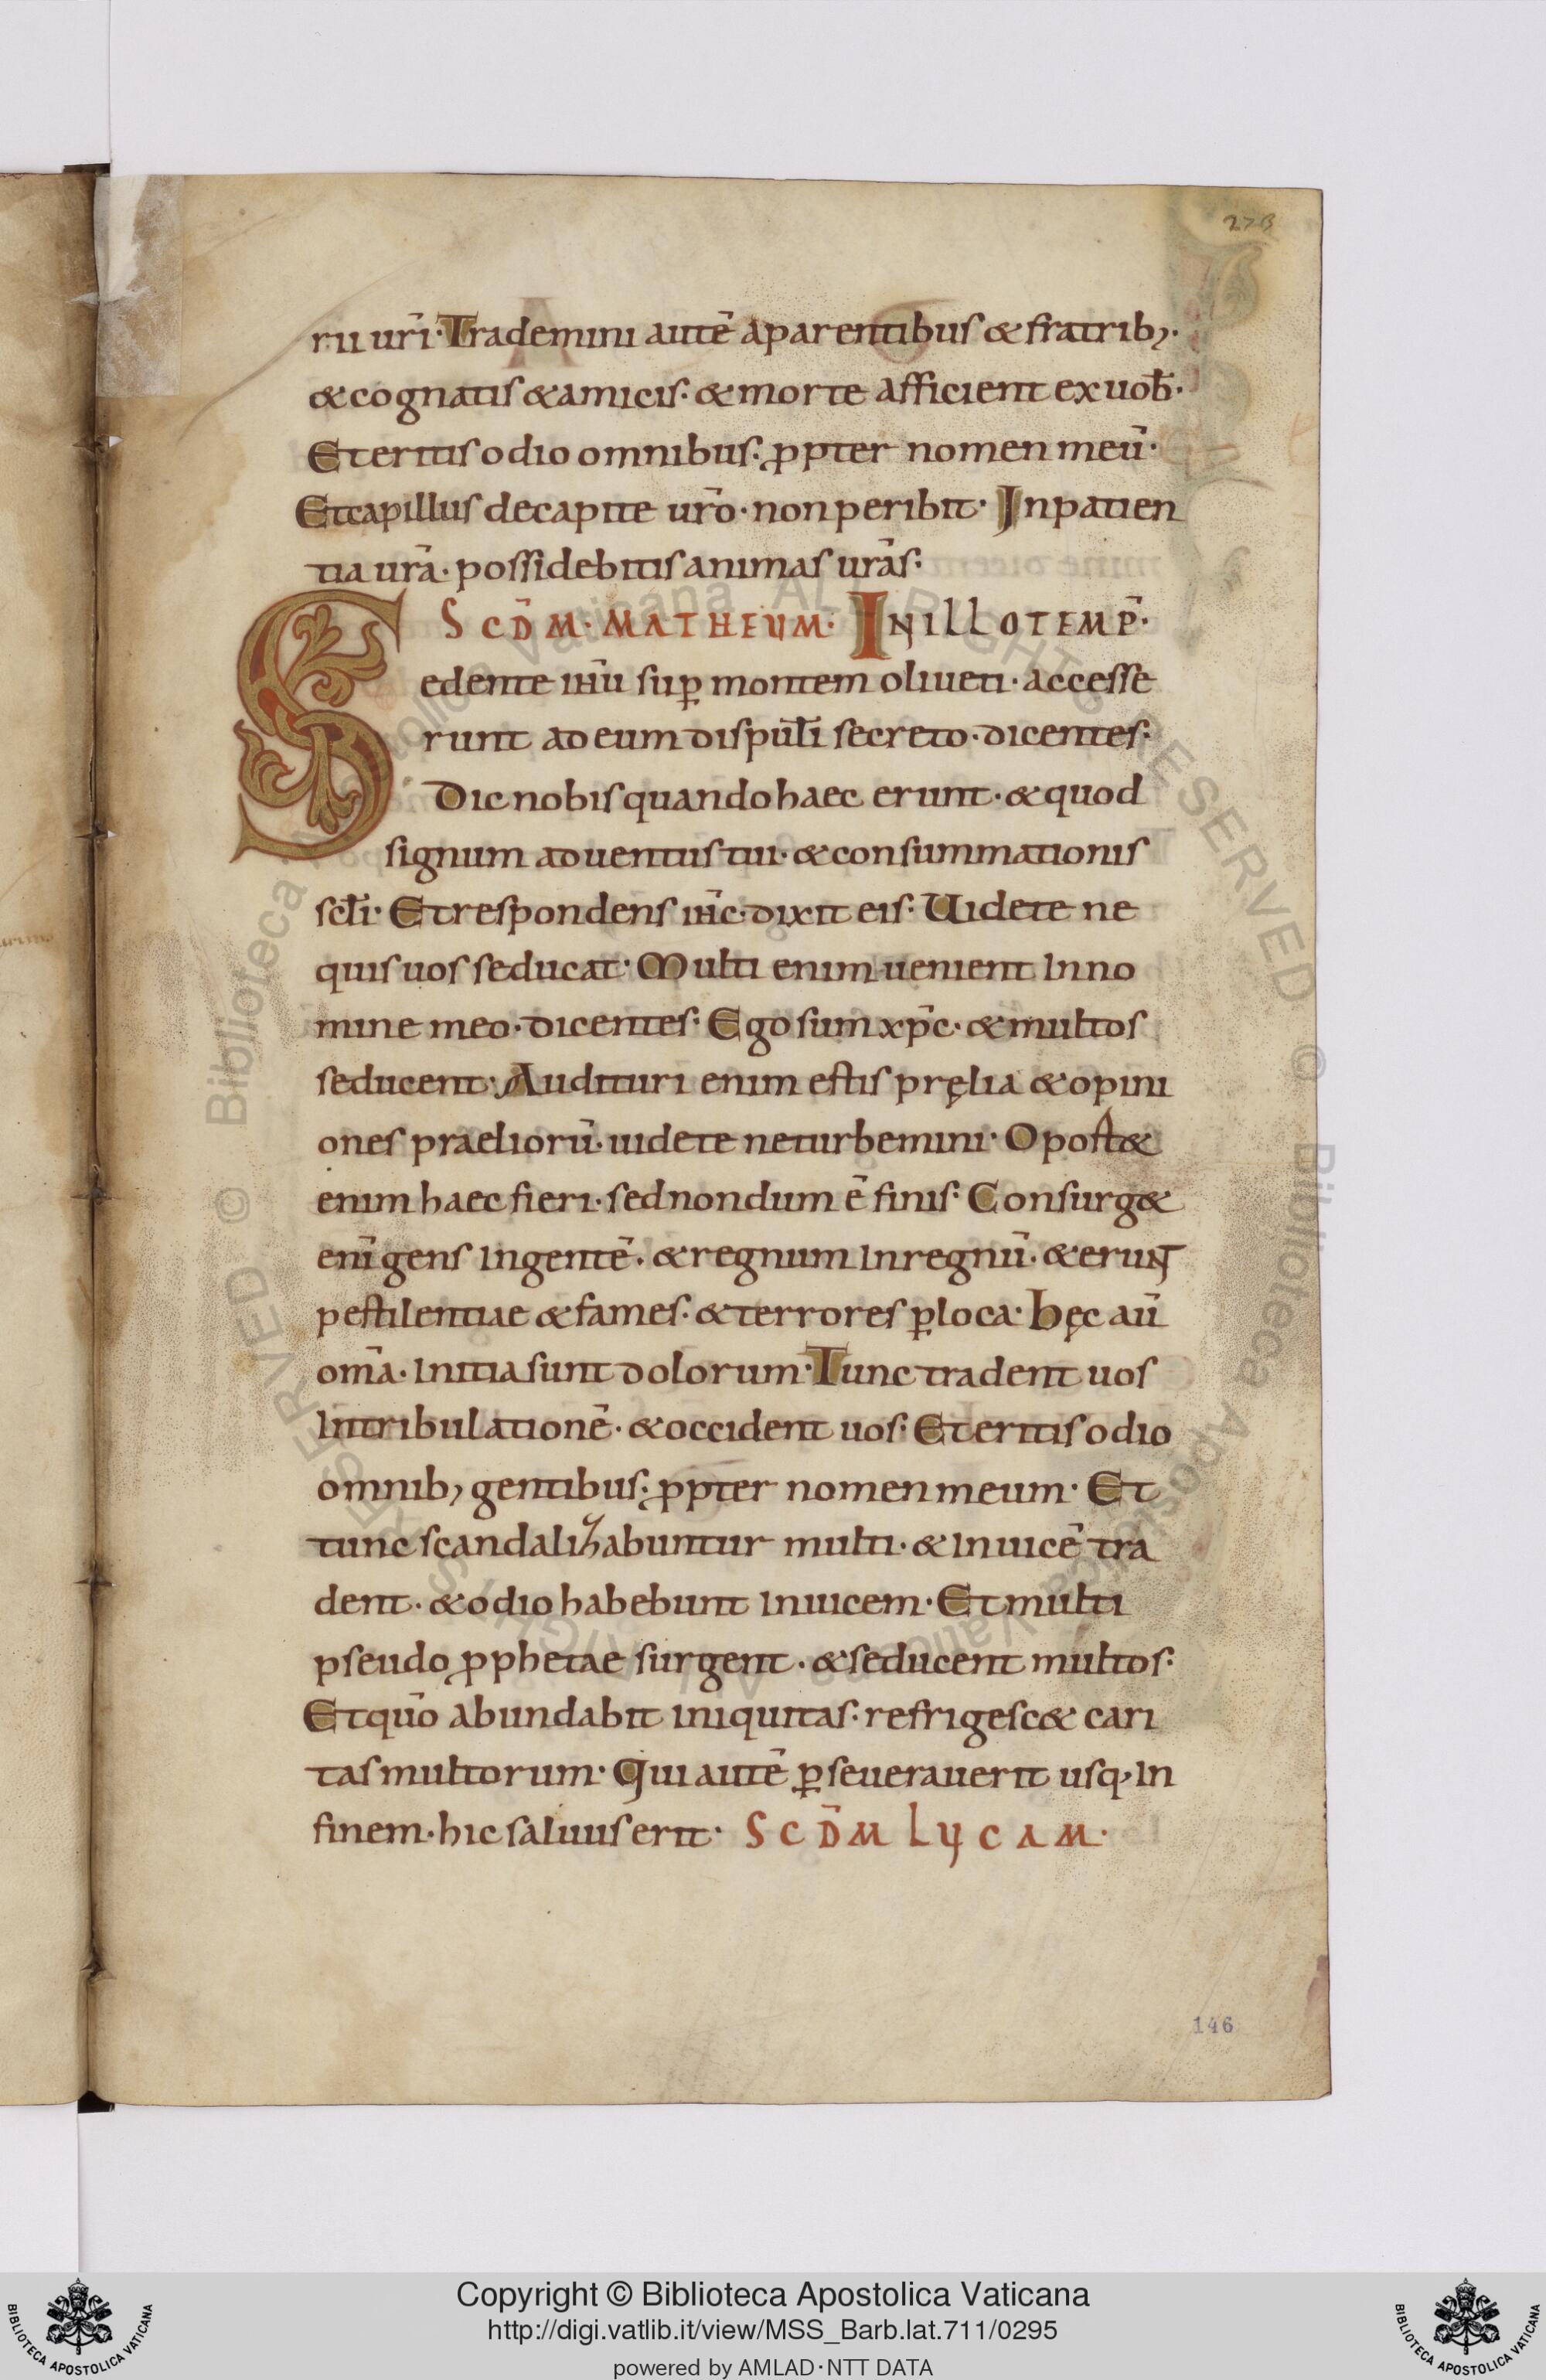 273
rii ur̄i· Trademini autē aparentibus & fratrib;·
& cognatis & amicis· & morte afficient ex uob̄·
Et eritis odio omnibus: ꝓpter nomen meū·
Et capillus de capite ur̄o· non peribit· Inpatien
tia ur̄a· possidebitis animas ur̄as:
SCD̄M· MATHEUM· IN ILLO TEMP̄·
Sedente ih̄u suꝑ montem oliueti· accesse
runt ad eum dispul̄i secreto· dicentes:
Dic nobis quando haec erunt· & quod
signum aduentus tui· & consummationis
scl̄i· Et respondens ih̄c· dixit eis: Uidete ne
quis uos seducat· Multi enim uenient In no
mine meo· dicentes: Ego sum xp̄c· & multos
seducent· Audituri enim estis pręlia & opini
ones praeliorū· uidete ne turbemini· Oport&
enim haec fieri· sed nondum ē finis: Consurg&
eni̅ gens In gentē· & regnum In regnū· & erunt
pestilentiae & fames· & terrores ꝑ loca· hęc aū
om̄a· Initia sunt dolorum· Tunc tradent uos
In tribulationē· & occident uos: Et eritis odio
omnib; gentibus: ꝓpter nomen meum· Et
tunc scandalizabuntur multi· & Inuicē tra
dent· & odio habebunt Inuicem· Et multi
pseudo ꝓphetae surgent· & seducent multos:
Et qūo abundabit Iniquitas: refrigesc& cari
tas multorum· Qui autē ꝑseuerauerit usq; In
finem· hic saluus erit· SCD̄M LYCAM·
146
© Biblioteca Apostolica Vaticana ALL RIGHTS RESERVED
Copyright © Biblioteca Apostolica Vaticana
http://digi.vatlib.it/view/MSS_Barb.lat.711/0295
powered by AMLAD·NTT DATA
BIBLIOTECA APOSTOLICA VATICANA
BIBLIOTECA APOSTOLICA VATICANA